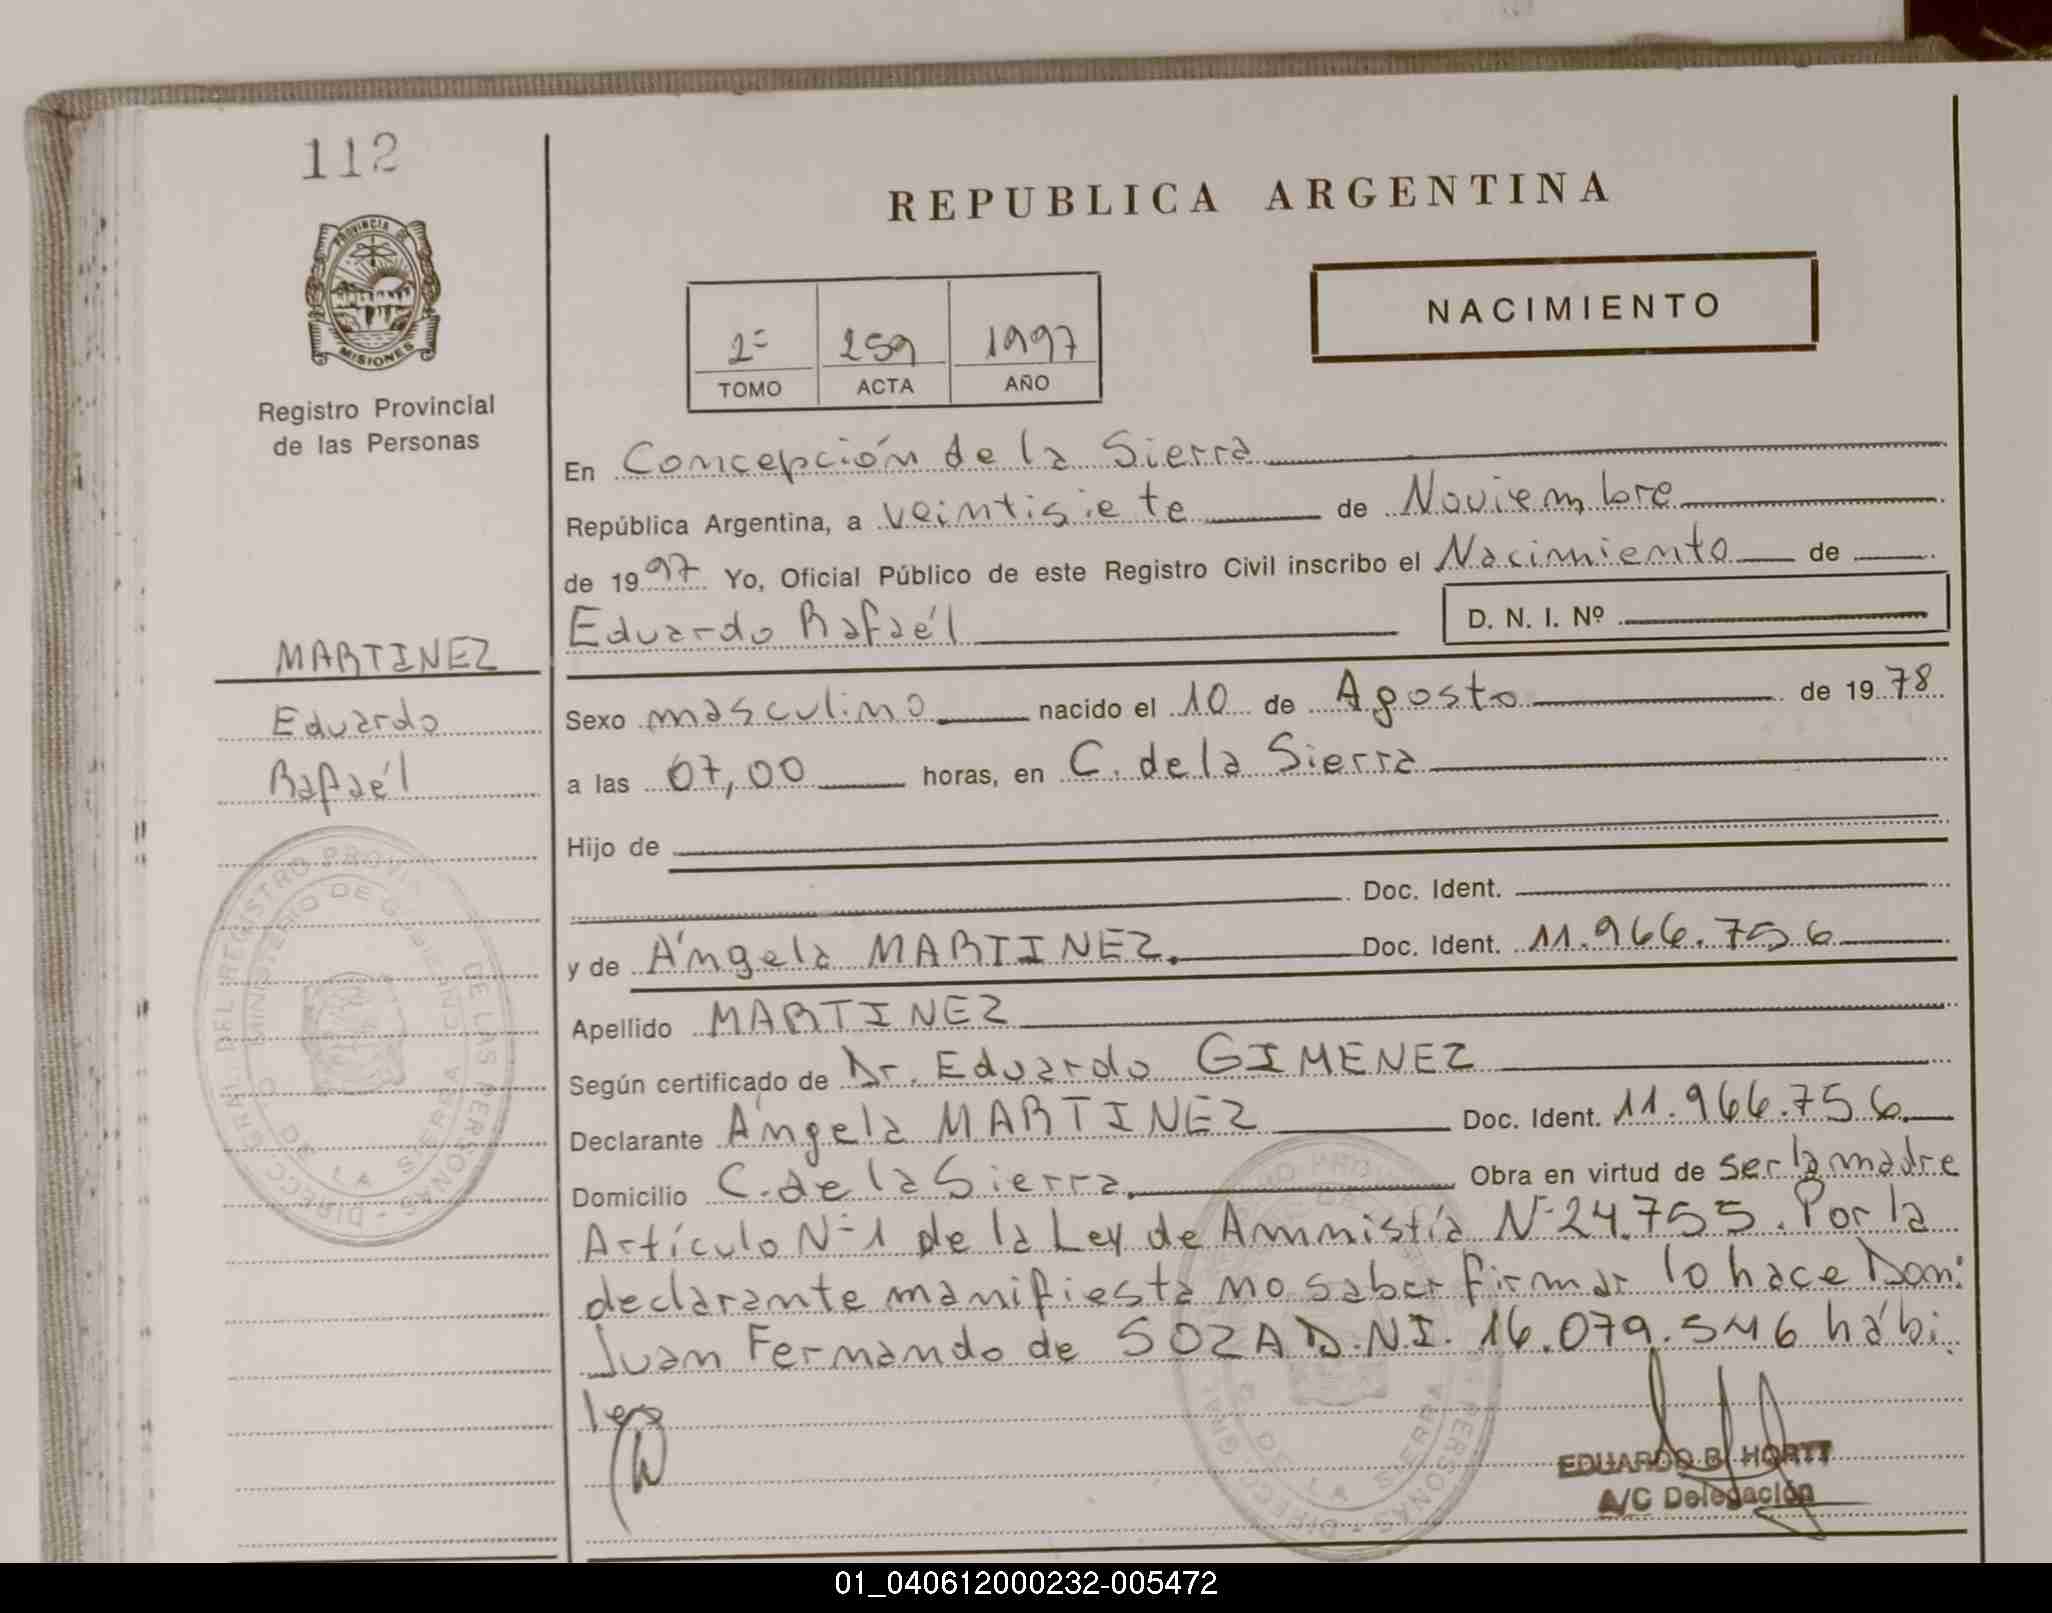 112
REPUBLICA ARGENTINA
PROVINCIA DE
MISIONES
Registro Provincial
de las Personas
2º 259 1997
TOMO ACTA AÑO
NACIMIENTO
En Concepción de la Sierra
República Argentina, a veintisiete de Noviembre
de 1997 Yo, Oficial Público de este Registro Civil inscribo el Nacimiento de
Eduardo Rafaél D. N. I. Nº
MARTINEZ
Eduardo
Rafaél
Sexo masculino nacido el 10 de Agosto de 1978
a las 07,00 horas, en C. de la Sierra
Hijo de
Doc. Ident.
y de Ángela MARTINEZ. Doc. Ident. 11.966.756
Apellido MARTINEZ
Según certificado de Dr. Eduardo GIMENEZ
Declarante Ángela MARTINEZ Doc. Ident. 11.966.756.
Domicilio C. de la Sierra. Obra en virtud de ser la madre
Artículo Nº1 de la Ley de Amnistía Nº 24.755. Por la
declarante manifiesta no saber firmar lo hace Don:
Juan Fernando de SOZA D.N.I. 16.079.546 hábi
les
EDUARDO B. HORTT
A/C Delegación
DIRECC. GRAL. DEL REGISTRO PROVINCIAL DE LAS PERSONAS
MINISTERIO DE GOBIERNO
DE LA SIERRA
01_040612000232-005472